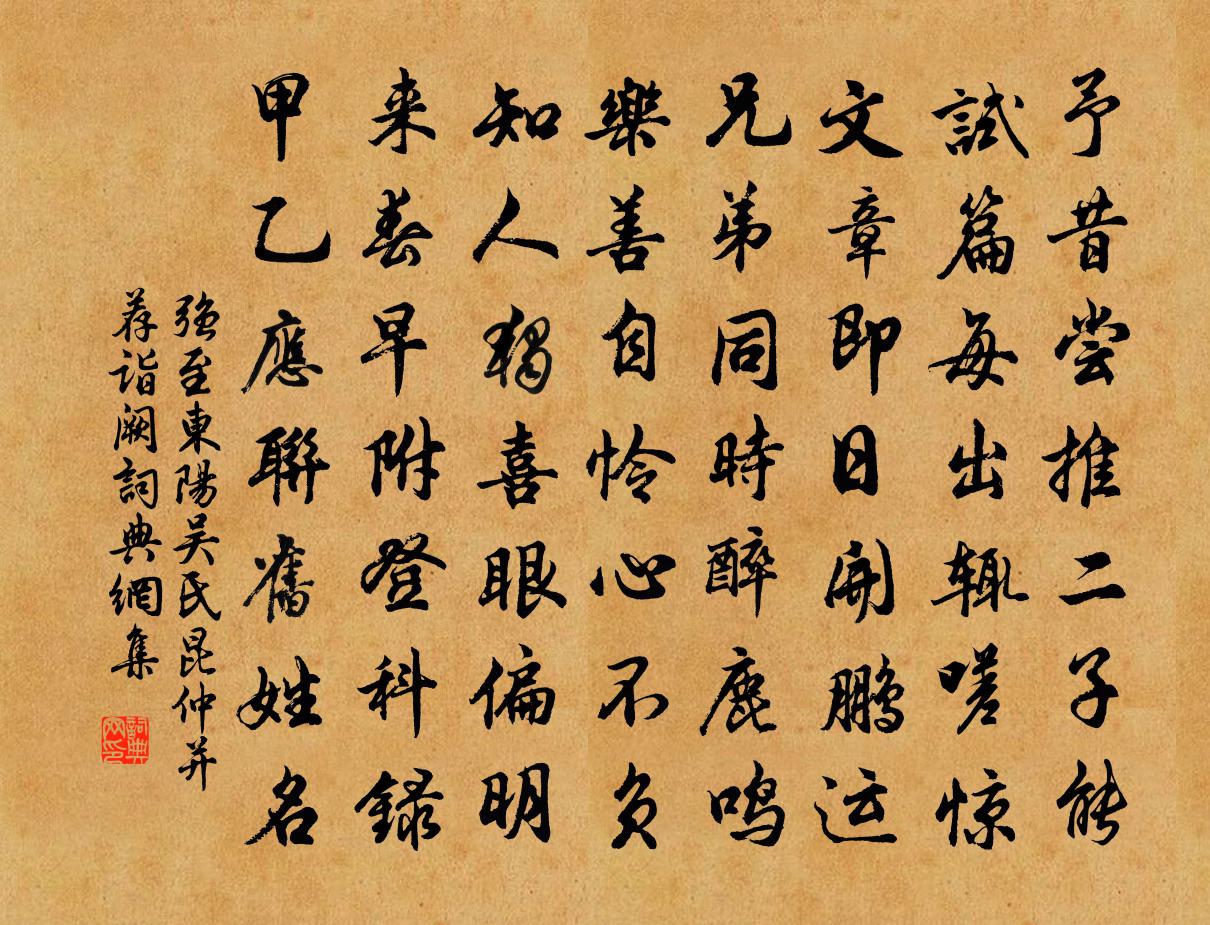 予昔尝推二子能
試篇每出辄嗟惊
文章即日開鵬运
兄弟同時醉鹿鸣
樂善自怜心不负
知人獨喜眼偏明
来春早附登科録
甲乙應聯舊姓名
强至東陽吴氏昆仲并
荐诣阙詞典網集
詞典网印